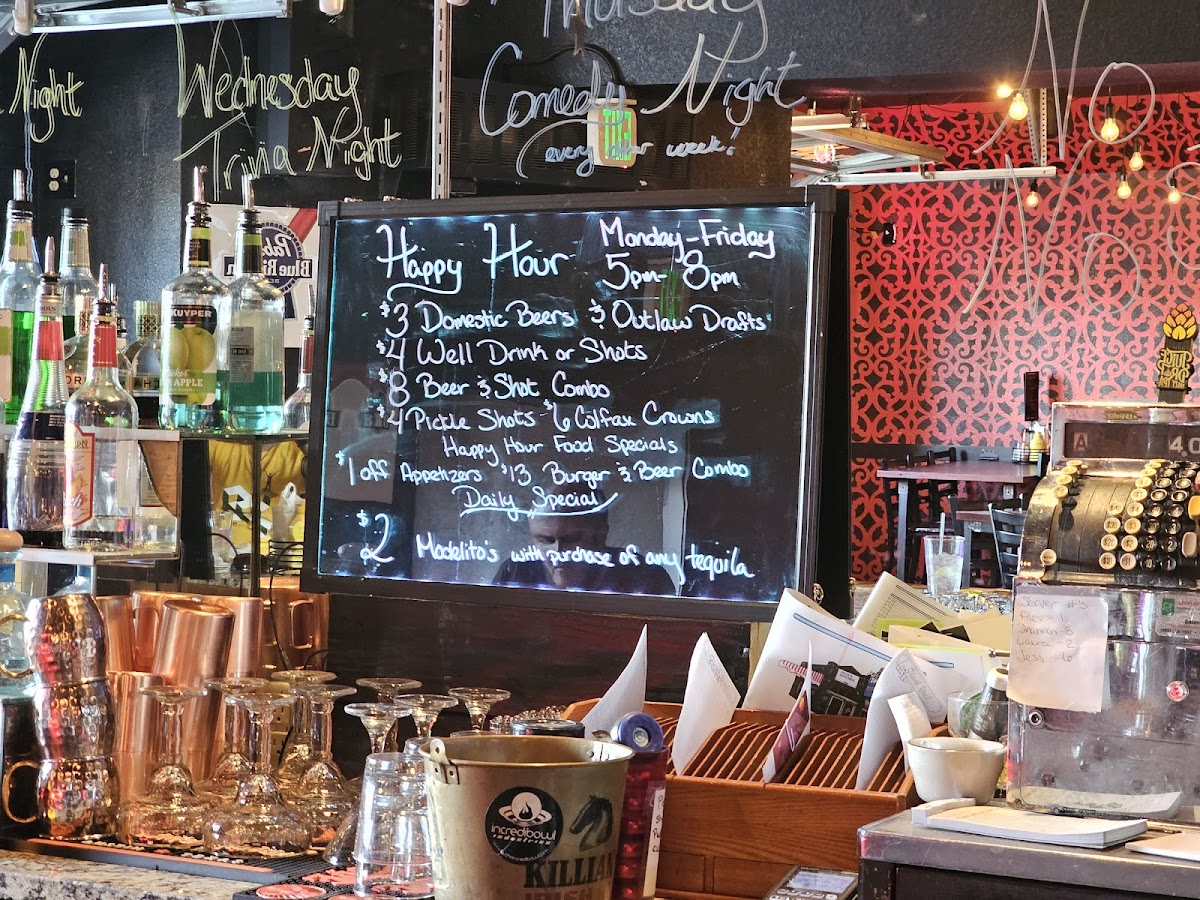 Thursday
Night
Wednesday
Trivia Night
Comedy Night
every other week
Happy Hour Monday-Friday
5pm-8pm
$3 Domestic Beers & Outlaw Drafts
$4 Well Drink or Shots
$8 Beer & Shot Combo
$4 Pickle Shots $6 Colfax Crowns
Happy Hour Food Specials
$1 off Appetizers $13 Burger & Beer Combo
Daily Special
$2 Modelito's with purchase of any tequila
Pabst
Blue Ribbon
KUYPER
APPLE
JUICE
DROP
A
Server #'s
Alex - 1
Laura - 2
Jess - 6
incredibowl
INDUSTRIES
KILLIAN'S
IRISH